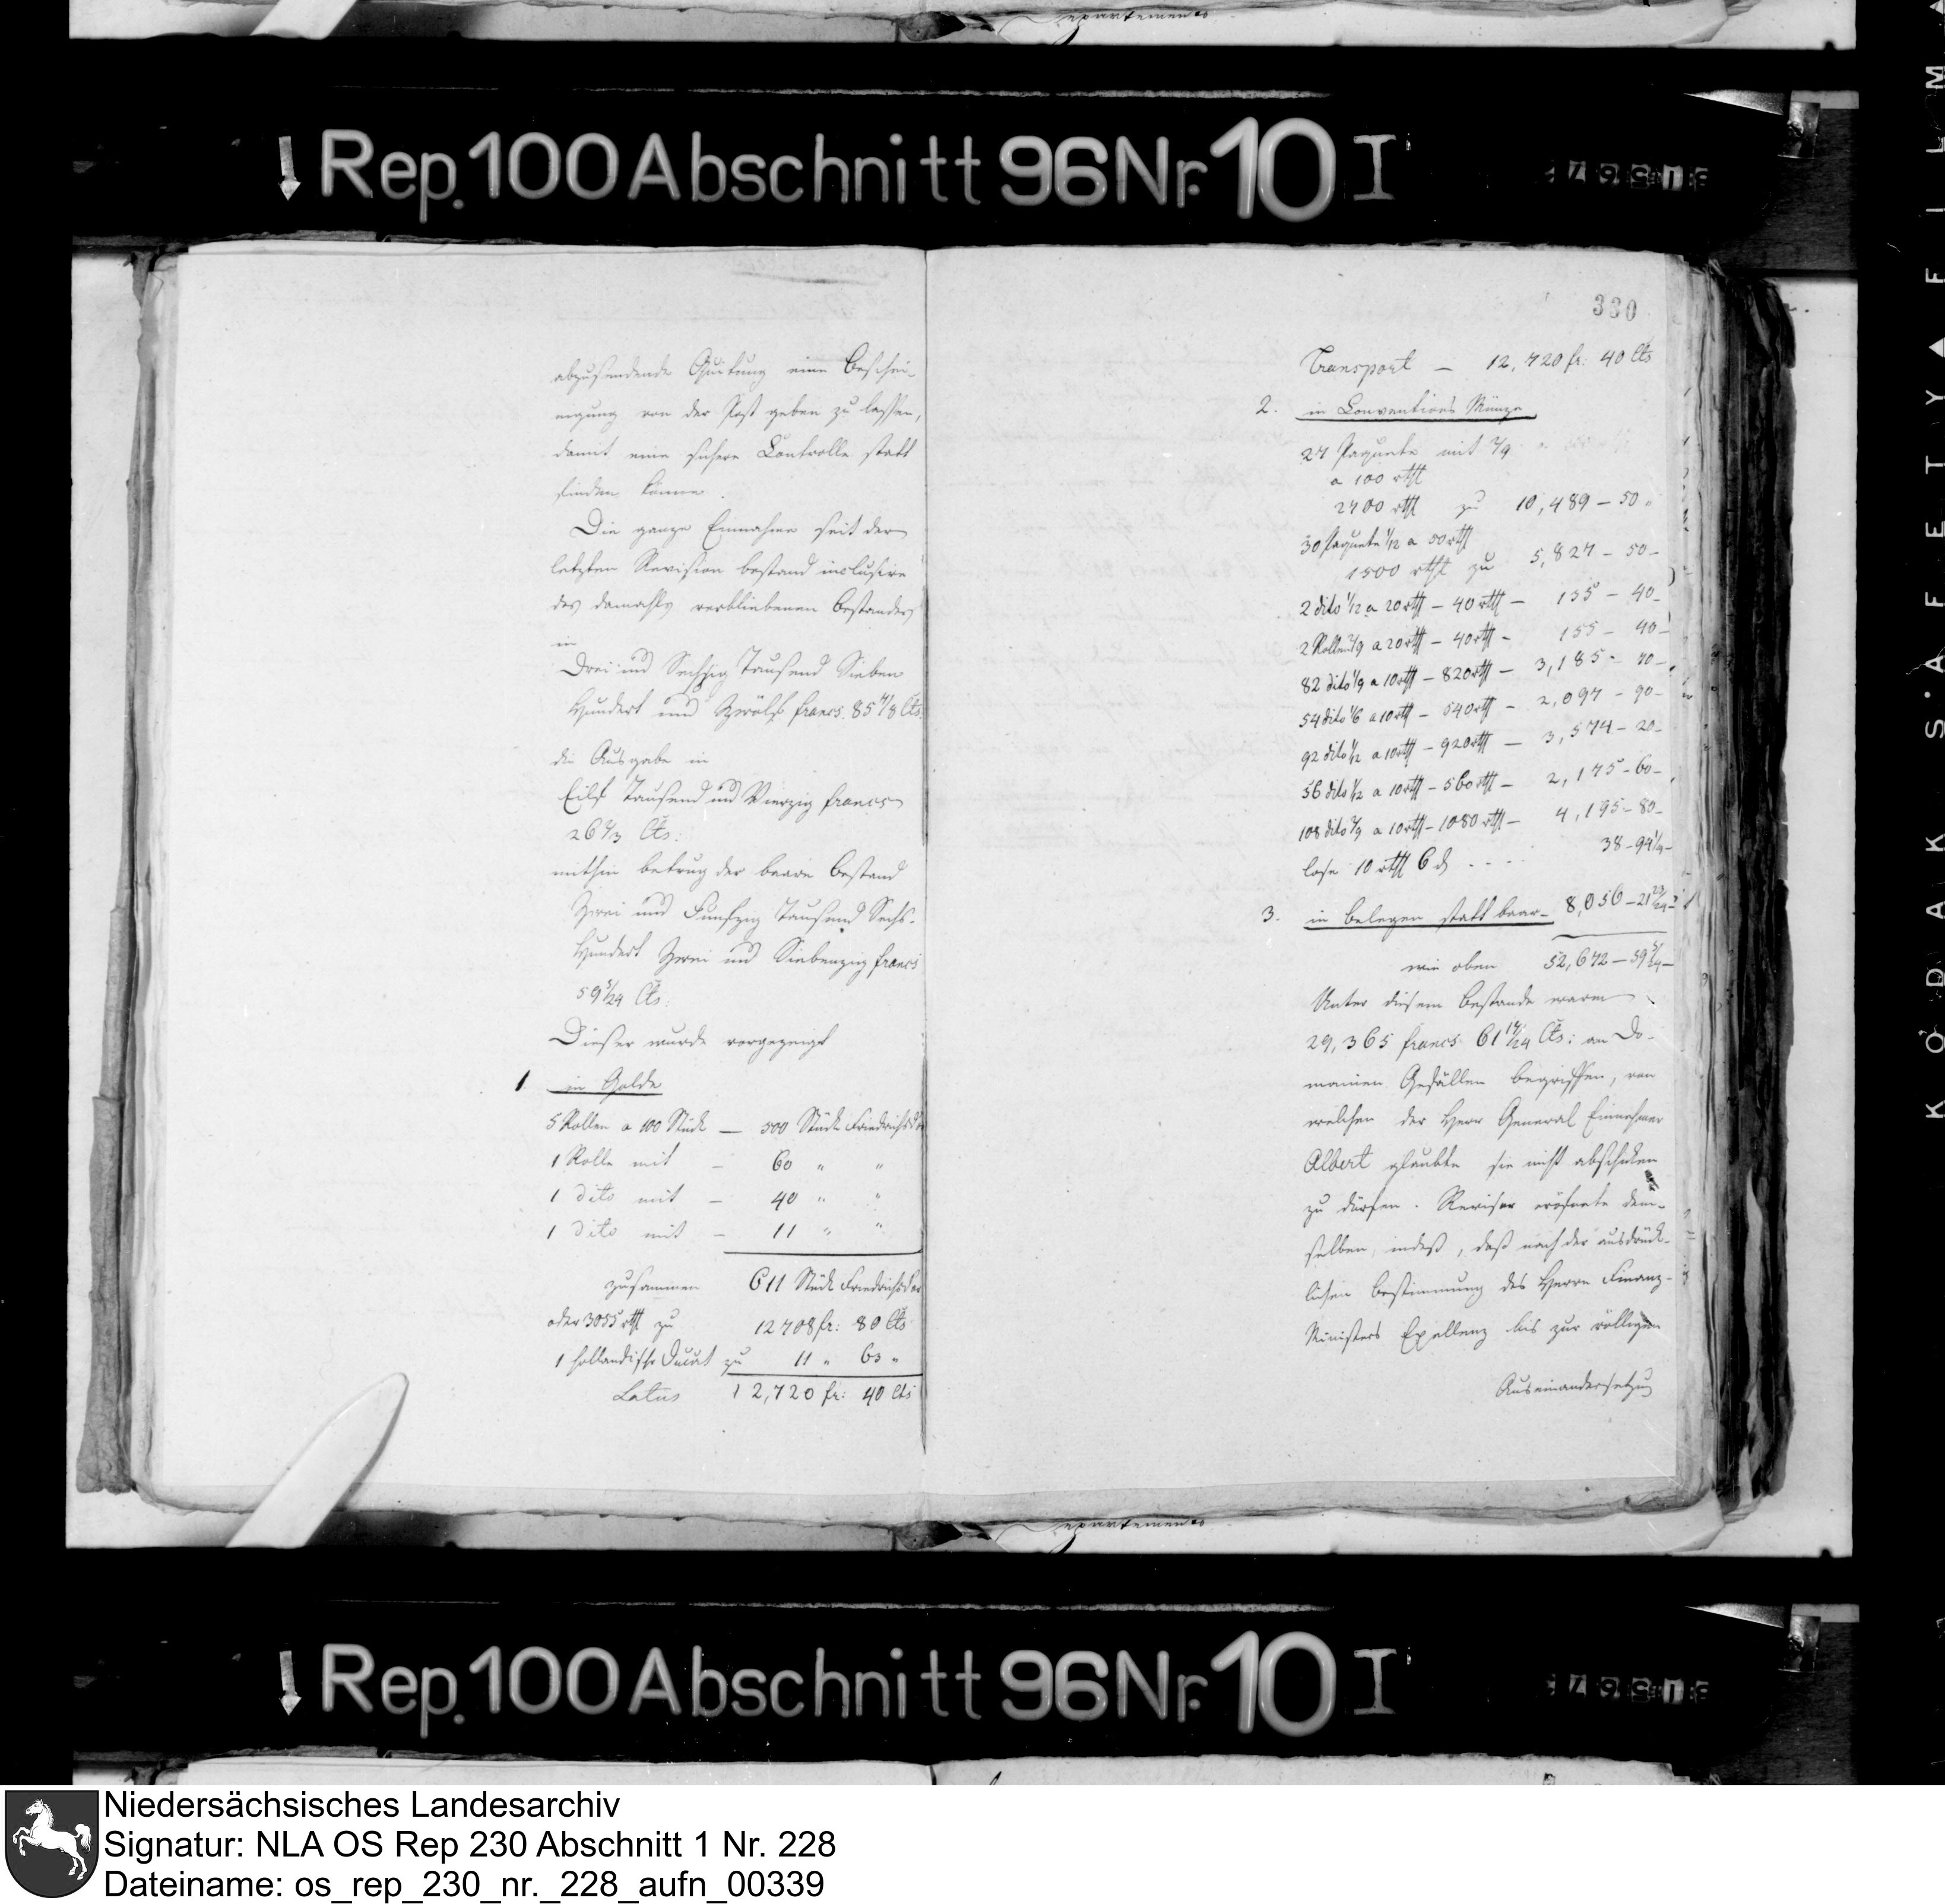 epartements
Rep. 100 Abschnitt 96 Nr. 10 I
abzusendende Quitung eine Beschei-
nigung von der Post geben zu lassen,
damit eine sichere Controlle statt
finden könne.
Die ganze Einnahme seit der
letzten Revision bestand inclusive
des damahls verbliebenen Bestandes
in
Drei und Sechszig Tausend Sieben
Hundert und Zwölf francs. 85 7/8 Cts.
die Ausgabe in
Eilf Tausend und Vierzig francs
26 2/3 Cts:
mithin betrug der baare Bestand
Zwei und Funfzig Tausend Sechs-
Hundert Zwei und Siebenzig francs
59 5/24 Cts:
Dieser wurde vorgezeigt
1. in Golde
5 Rollen a 100 Stück — 500 Stück Friedrichsd'or
1 Rolle mit — 60 " "
1 dito mit — 40 " "
1 dito mit — 11 " "
zusammen 611 Stück Friedrichsd'or
oder 3055 rthl zu 12708 fr: 80 Cts
1 holländischer Ducat zu 11 " 60 "
Latus 12,720 fr: 40 Cts
330
Transport — 12,720 fr: 40 Cts
2. in Conventions Münze
27 Paquete mit 2/3
a 100 rthl
2700 rthl zu 10,489 — 50 "
30 Paquete 1/12 a 50 rthl
1500 rthl zu 5,827 — 50 —
2 dito 1/12 a 20 rthl — 40 rthl — 155 — 40 —
2 Rollen 2/3 a 20 rthl — 40 rthl — 155 — 40 —
82 dito 1/3 a 10 rthl — 820 rthl — 3,185 — 70 —
54 dito 1/6 a 10 rthl — 540 rthl — 2,097 — 90 —
92 dito 1/12 a 10 rthl — 920 rthl — 3,574 — 20 —
56 dito 1/12 a 10 rthl — 560 rthl — 2,175 — 60 —
108 dito 2/3 a 10 rthl — 1080 rthl — 4,195 — 80 —
lose 10 rthl 6 d . . . . 38 — 94 1/4 —
3. in Belegen statt baar — 8,056 — 21 23/24 —
wie oben 52,672 — 59 5/24 —
Unter diesem Bestande waren
29,365 francs 61 17/24 Cts: an Do-
mainen Gefällen begriffen, von
welchen der Herr General Einnehmer
Albert glaubte sie nicht abschicken
zu dürfen. Revisor eröfnete dem-
selben indeß, daß nach der ausdrück-
lichen Bestimmung des Herrn Finanz-
Ministers Exellenz bis zur völligen
Auseinandersetzung
epartements
Rep. 100 Abschnitt 96 Nr. 10 I
KODAK SAFETY FILM
Niedersächsisches Landesarchiv
Signatur: NLA OS Rep 230 Abschnitt 1 Nr. 228
Dateiname: os_rep_230_nr._228_aufn_00339